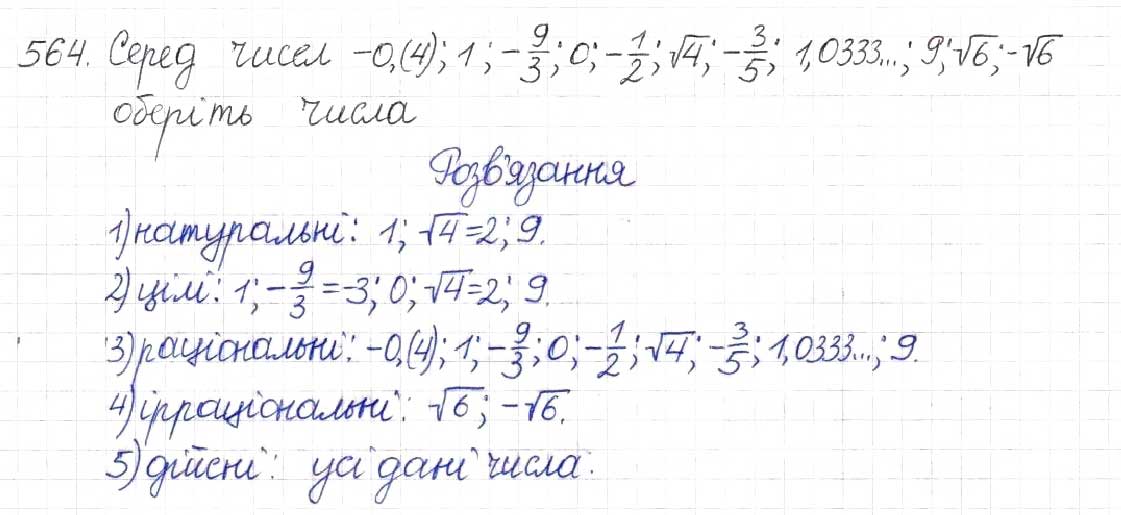 564. Серед чисел -0,(4); 1; -9/3; 0; -1/2; √4; -3/5; 1,0333...; 9; √6; -√6
оберіть числа
Розв'язання
1) натуральні: 1; √4=2; 9.
2) цілі: 1; -9/3=-3; 0; √4=2; 9.
3) раціональні: -0,(4); 1; -9/3; 0; -1/2; √4; -3/5; 1,0333...; 9.
4) ірраціональні: √6; -√6.
5) дійсні: усі дані числа.